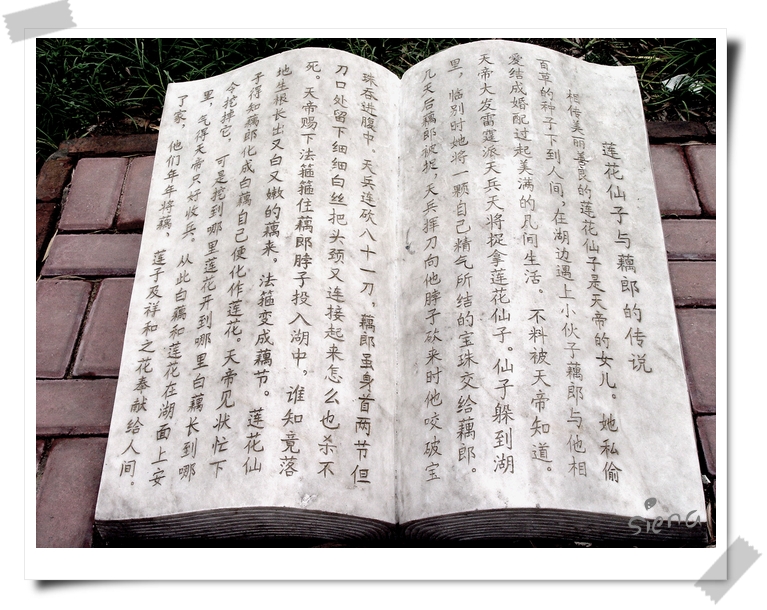 莲花仙子与藕郎的传说
相传美丽善良的莲花仙子是天帝的女儿。她私偷
百草的种子下到人间,在湖边遇上小伙子藕郎与他相
爱结成婚配过起美满的凡间生活。不料被天帝知道。
天帝大发雷霆派天兵天将捉拿莲花仙子。仙子躲到湖
里,临别时她将一颗自己精气所结的宝珠交给藕郎。
几天后藕郎被捉,天兵挥刀向他脖子砍来时他咬破宝
珠吞进腹中。天兵连砍八十一刀,藕郎虽身首两节但
刀口处留下细细白丝把头颈又连接起来怎么也杀不
死。天帝赐下法箍箍住藕郎脖子投入湖中,谁知竟落
地生根长出又白又嫩的藕来。法箍变成藕节。莲花仙
子得知藕郎化成白藕自己便化作莲花。天帝见状忙下
令挖掉它,可是挖到哪里莲花开到哪里白藕长到哪
里,气得天帝只好收兵。从此白藕和莲花在湖面上安
了家,他们年年将藕、莲子及祥和之花奉献给人间。
siena